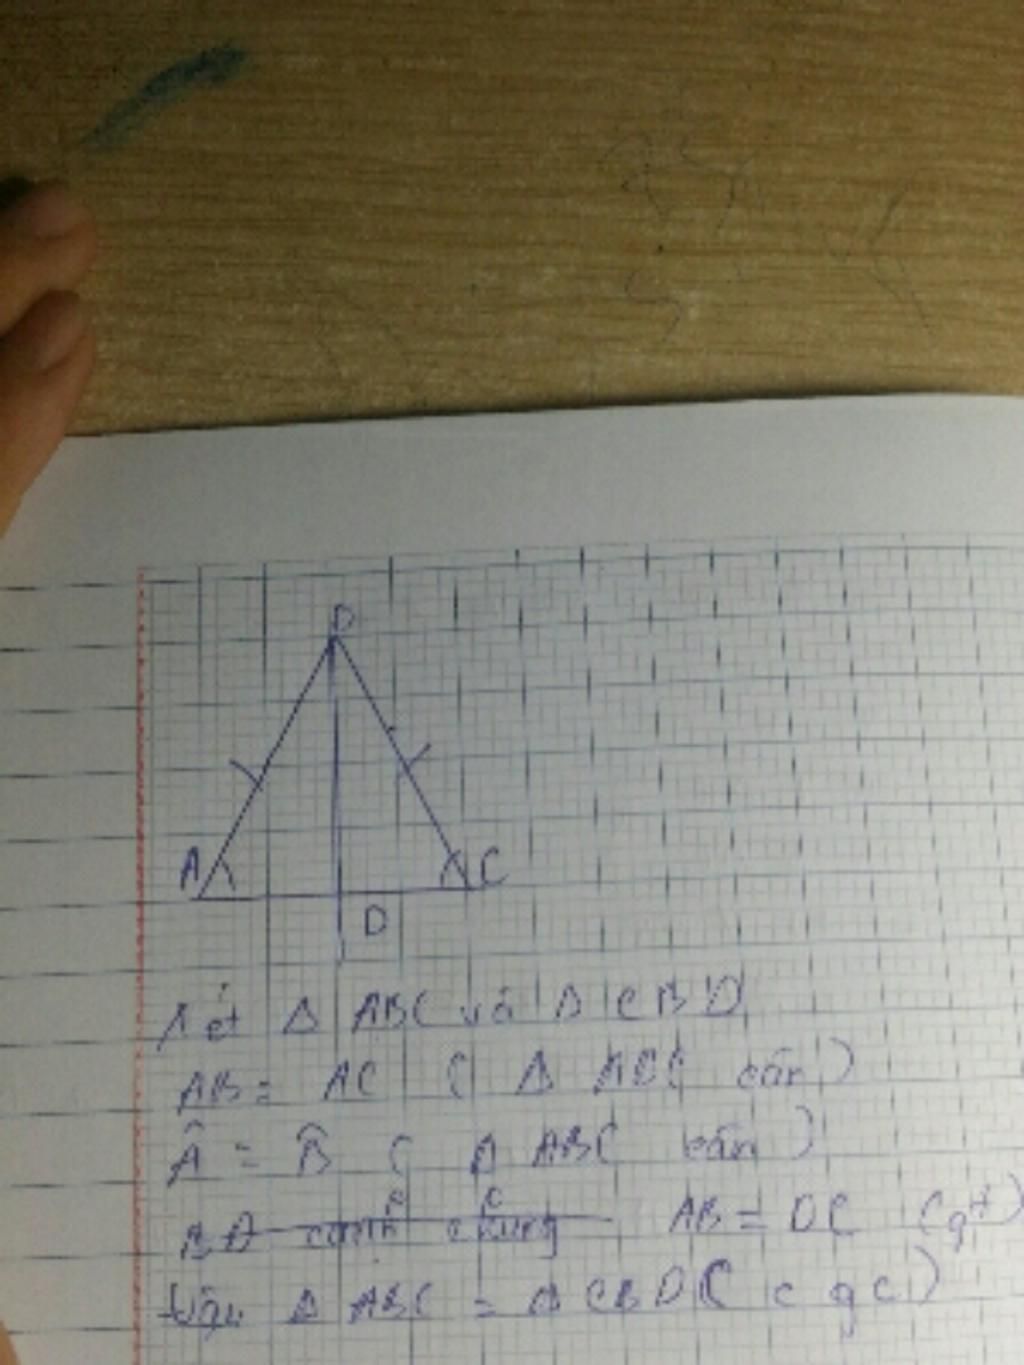 B
A
C
D
Xét Δ ABC và Δ CBD
AB = AC ( Δ ABC cân )
Â = B̂ ( Δ ABC cân )
BD cạnh chung AB = DC (gt)
Vậy Δ ABC = Δ CBD ( c g c )